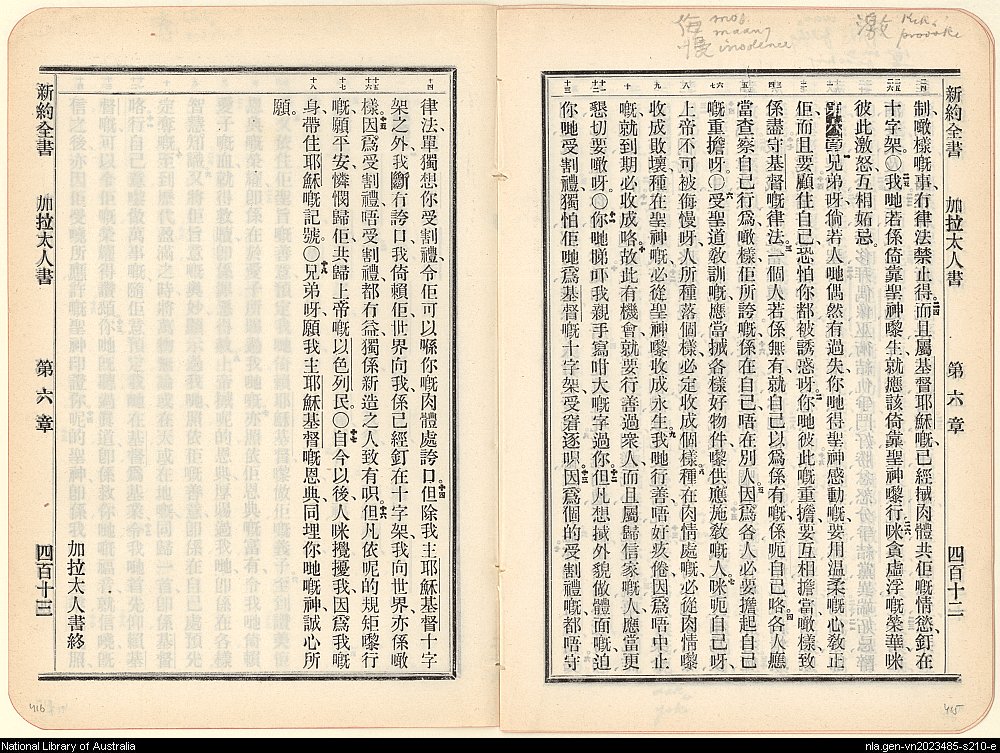 侮 moo
慢 maan
insolence
激 Kik
provoke
新約全書 加拉太人書 第六章 四百十二
制、噉樣嘅事、冇律法禁止得。而且屬基督耶穌嘅、已經搣肉體共佢嘅情慾、釘在
十字架。○我哋若係倚靠聖神嚟生、就應該倚靠聖神嚟行。咪貪虛浮嘅榮華、咪
彼此激怒、互相妬忌。
兄弟呀、倘若人哋偶然有過失、你哋得聖神感動嘅、要用温柔嘅心教正
佢、而且要顧住自己、恐怕你都被誘惑呀。你哋彼此嘅重擔、要互相擔當、噉樣致
係盡守基督嘅律法。一個人若係無有、就自己以為係有嘅、係呃自己咯。各人應
當查察自己行為、噉樣佢所誇嘅、係在自己、唔在別人。因為各人必要擔起自己
嘅重擔呀。○受聖道教訓嘅、應當搣各樣好物件、嚟供應施教嘅人。咪呃自己呀、
上帝不可被侮慢呀、人所種落個樣、必定收成個樣。種在肉情處嘅、必從肉情嚟
收成敗壞、種在聖神嘅、必從聖神嚟收成永生。我哋行善、唔好疚倦、因為唔中止
嘅、就到期必收成咯。故此有機會、就要行善過衆人、而且屬歸信家嘅人、應當更
懇切要噉呀。○你哋睇吓我親手寫咁大嘅字過你。但凡想搣外貌做體面嘅、迫
你哋受割禮、獨怕佢哋為基督嘅十字架受窘逐唄。因為個的受割禮嘅、都唔守
415
新約全書 加拉太人書 第六章 四百十三
律法、單獨想你受割禮、令佢可以喺你嘅肉體處誇口。但除我主耶穌基督十字
架之外、我斷冇誇口、我倚賴佢、世界向我係已經釘在十字架、我向世界亦係噉
樣。因為受割禮、唔受割禮、都冇益、獨係新造之人致有唄。但凡依呢的規矩嚟行
嘅、願平安憐憫歸佢、共歸上帝嘅以色列民。○自今以後、人咪攪擾我、因為我嘅
身帶住耶穌嘅記號。○兄弟呀、願我主耶穌基督嘅恩典、同埋你哋嘅神、誠心所
願。
加拉太人書終
416
National Library of Australia
nla.gen-vn2023485-s210-e